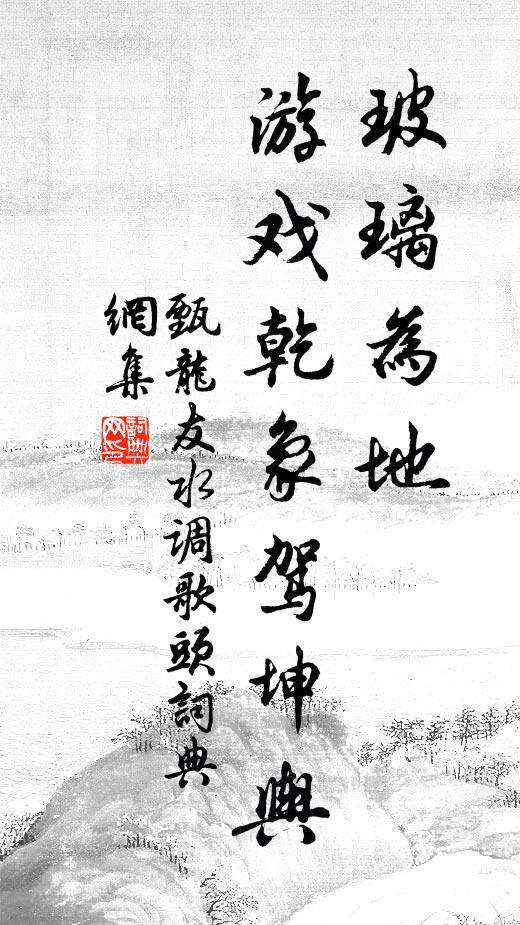 玻璃為地
游戏乾象駕坤輿
甄龍友水调歌頭詞典
網集
詞典
网印